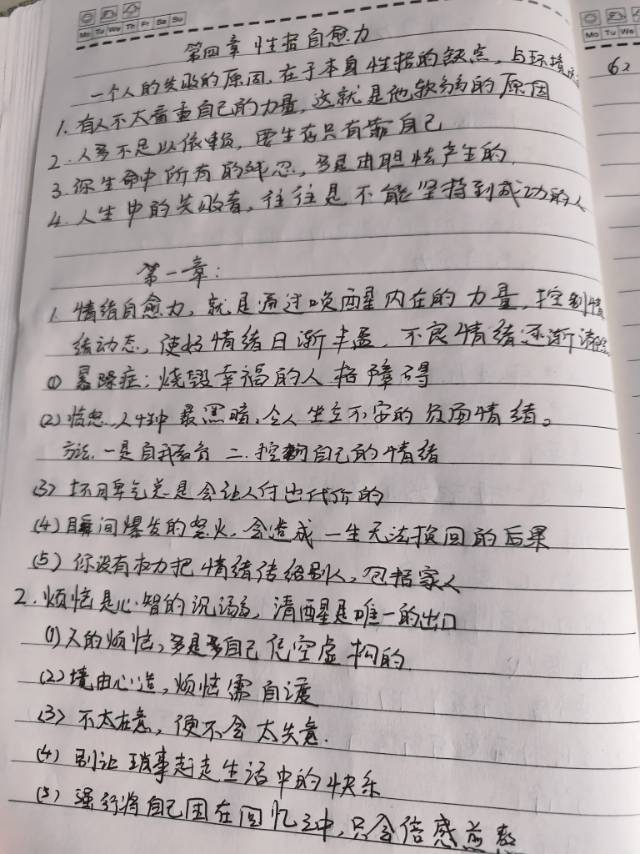 Mo Tu We Th Fr Sa Su
Mo Tu We
第四章 性格自愈力
一个人的失败的原因,在于本身性格的缺点,与环境
62
1.有人不太看重自己的力量,这就是他软弱的原因
2.人多不足以依赖,要生存只有靠自己
3.你生命中所有的残忍,多是由胆怯产生的
4.人生中的失败者,往往是不能坚持到成功的人
第一章:
1.情绪自愈力,就是通过唤醒内在的力量,控制情
绪动态,使好情绪日渐丰盈,不良情绪逐渐清
① 暴躁症:烧毁幸福的人格障碍
(2)愤怒 人性中最黑暗,令人坐立不安的负面情绪。
方法.一是自我 二.控制自己的情绪
(3)坏脾气总是会让人付出代价的
(4)瞬间爆发的怒火,会造成一生无法挽回的后果
(5)你没有权力把情绪传给别人,包括家人
2.烦恼是心智的沉溺,清醒是唯一的出口
(1)人的烦恼,多是自己凭空虚构的.
(2)境由心造,烦恼需自渡
(3)不太在意,便不会太失意.
(4)别让琐事赶走生活中的快乐
(5)强行将自己困在回忆之中,只会倍感煎熬